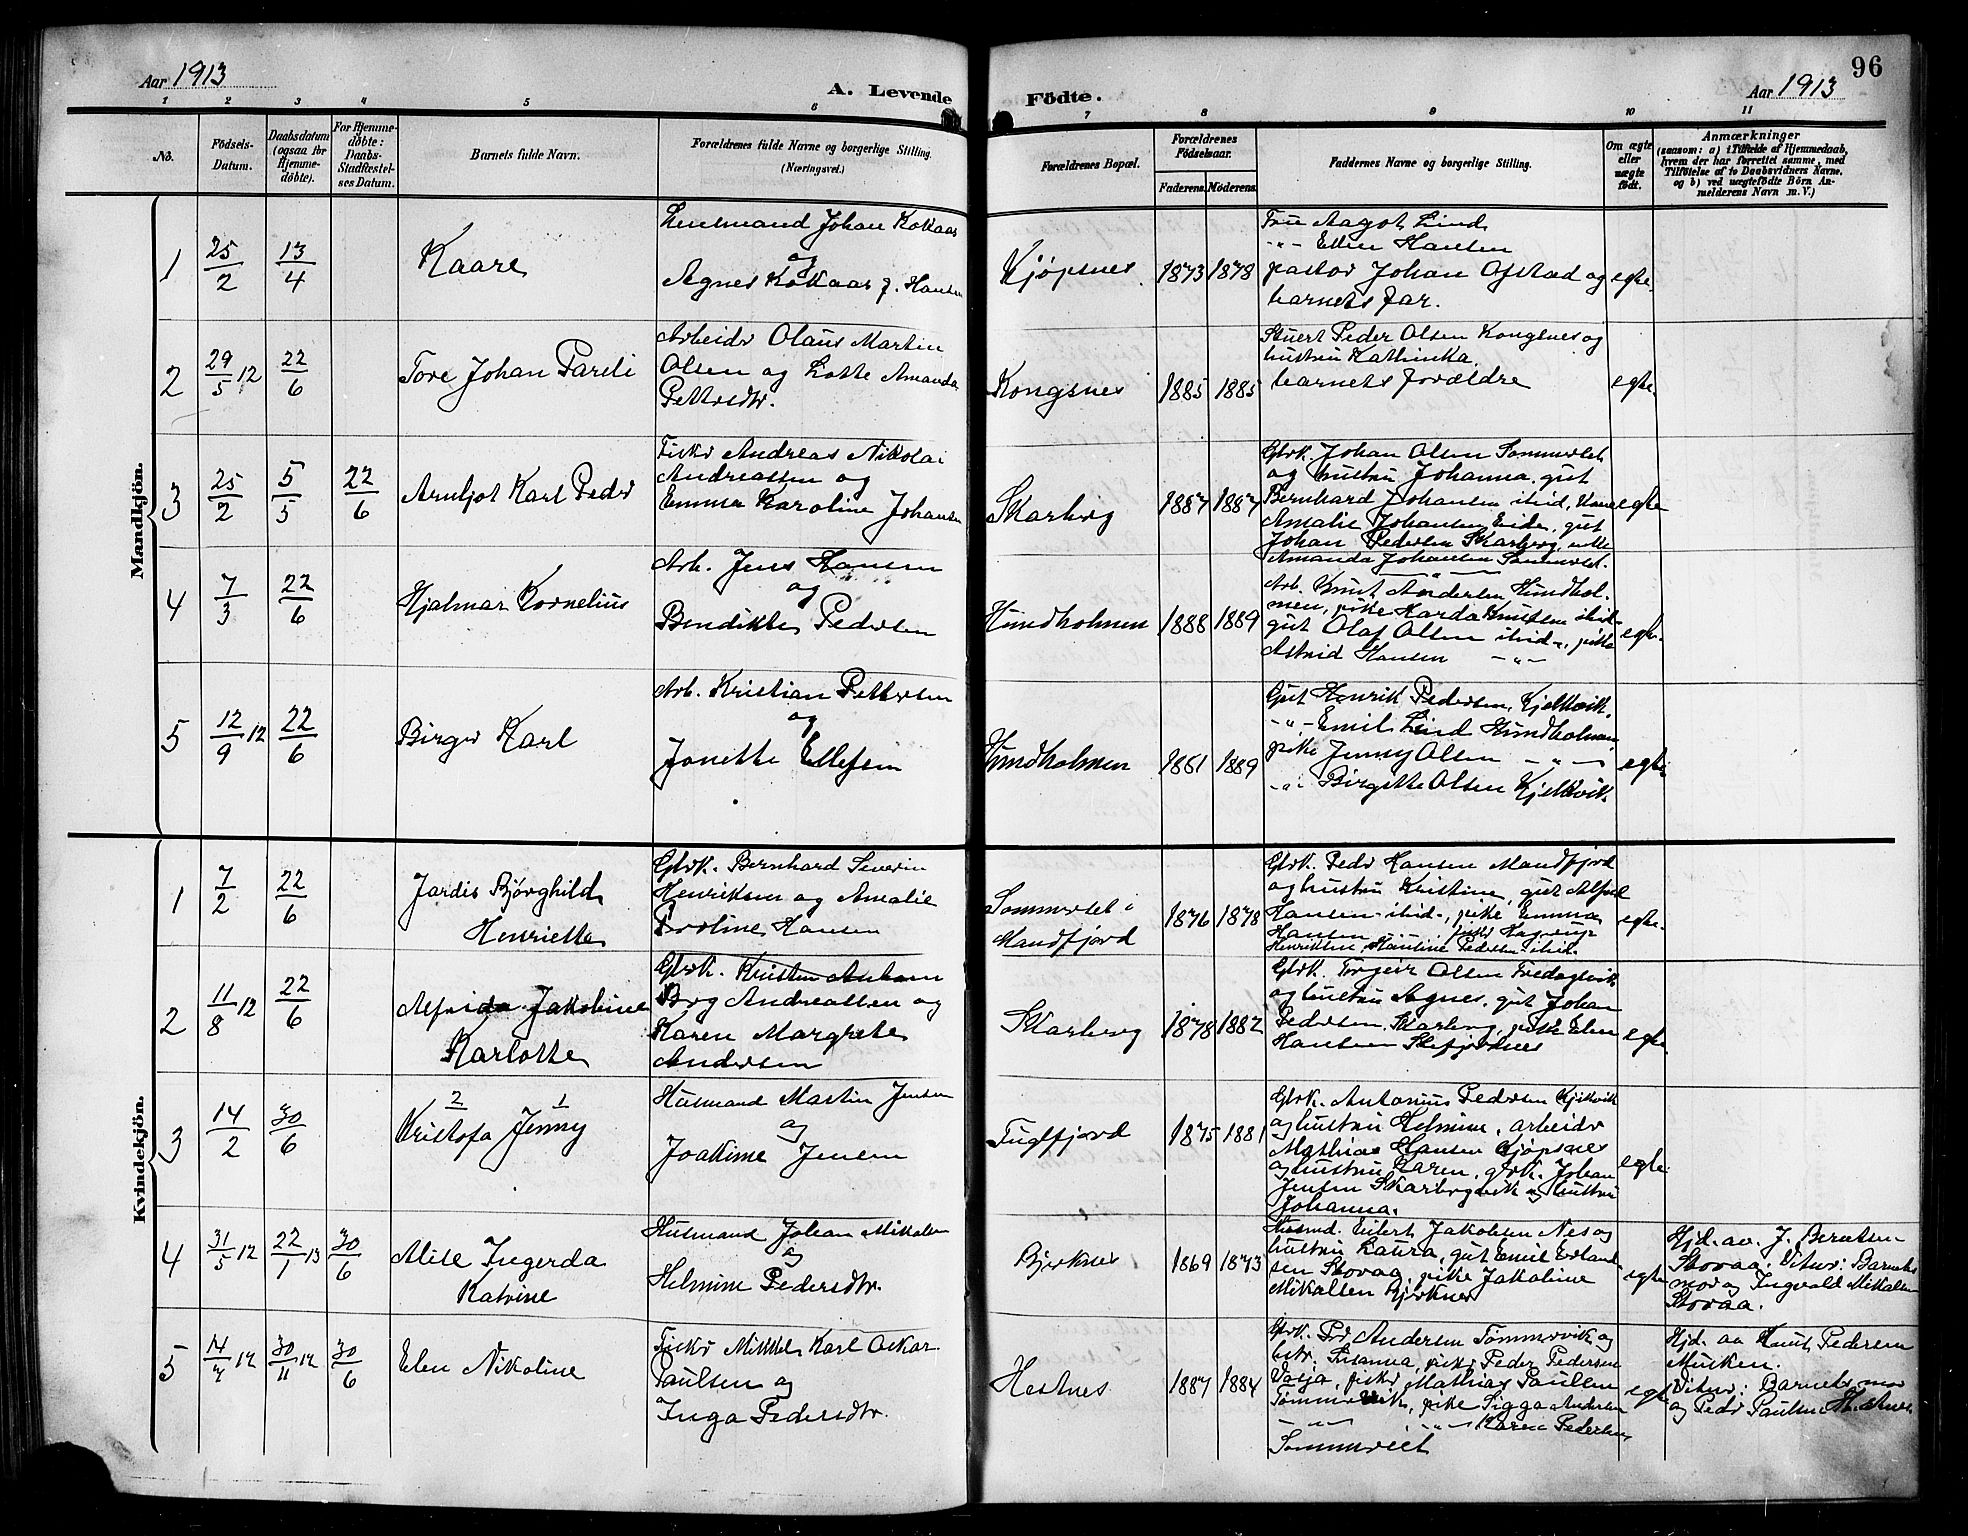 96
Aar 1913
A. Levende Fødte.
Aar 1913
1 2 3 4 5 6 7 8 9 10 11
No.
Fødsels-
Datum.
Daabsdatum
(ogsaa for
Hjemme-
døbte).
For Hjemme-
døbte:
Daabs-
Stadfæstel-
ses Datum.
Barnets fulde Navn.
Forældrenes fulde Navne og borgerlige Stilling.
(Næringsvei.)
Forældrenes Bopæl.
Forældrenes
Fødselsaar.
Faderens. Moderens.
Faddernes Navne og borgerlige Stilling.
Om ægte
eller
uægte
født.
Anmærkninger
(saasom: a) i Tilfælde af Hjemmedaab,
hvem der har forrettet samme, med
Tilføielse af to Daabsvidners Navne,
og b) ved uægtefødte Børn An-
melderens Navn m. V.)
Mandkjön.
1
25/2
13/4
Kaare
Johan Kokaas
og
Agnes Kokaas f. Hansen
Kjøpsnes
1873 1878
Fru Aagot Lind
-"- Ellen Hansen
pastor Johan Ofstad og
barnets far.
egte.
2
29/5 12
22/6
Tore Johan Pareli
Arbeidr Olaus Martin
Olsen og Lotte Amanda
Pettrsdtr.
Kongsnes
1885 1885
Stuert Peder Olsen Kongsnes og
hustru Kathinka.
barnets forældre
egte.
3
25/2
5/5
22/6
Arnljot Karl Pedr
Fiskr Andreas Nikolai
Andreassen og
Emma Karoline Johansen
Skarberg
1887 1887
Gbrk. Johan Olsen Sommerset
og hustru Johanna, gut
Bernhard Johansen ibid, Kone
Amalie Johansen Eide, gut
Johan Pedersen Skarberg, enke
Amanda Johansen Sommerset.
egte
4
7/3
22/6
Hjalmar Kornelius
Arb. Jens Hansen
og
Bendikte Pedersen
Hundholmen
1888 1889
Arb. Knut Andersen Hundhol-
men, pike Harda Knutsen ibid-
gut Olaf Olsen ibid-, pike
Astrid Hansen -"-
egte.
5
12/9 12
22/6
Birger Karl
Arb. Kristian Pettersen
og
Jonette Ellefsen
Hundholmen
1861 1889
Gut Henrik Pedersen, Kjelkvik.
-"- Emil Lind Hundholmen,
pike Jenny Olsen -"-
-"- Birgitte Olsen Kjelkvik
egte
Kvindekjön.
1
7/2
22/6
Jardis Bjørghild
Henriette
Gbrk. Bernhard Severin
Henriksen og Amalie
Hansen
Sommerset i
Mandfjord
1876 1878
Gbrk. Pedr Hansen Mandfjord
og hustru Kristine, gut Alfred
Hansen -ibid-, pike Emma
Hansen
Henriksen, Pedersen ibid.
egte.
2
11/8 12
22/6
Alfrida Jakobine
Karlotte
Gbrk. Kristen
Berg Andreassen og
Karen Margrete
Andersen
Skarberg
1878 1882
Gbrk. Torgeir Olsen Tredagsvik
og hustru Agnes, gut Johan
Pedersen, Skarberg, pike Elen
Hansen Skefjordnes
egte.
3
14/2
30/6
2 1
Kristofa Jenny
Husmand Martin Jensen
og
Joakime Jensen
Fuglfjord
1875 1881
Gbrk. Antonius Pedersen Kjelkvik
og hustru Helmine, arbeidr
Mathias Hansen Kjøpsnes
og hustru Karen, gbrk. Johan
Jensen Skarbergvik og hustru
Johanna.
egte.
4
31/5 12
22/1 13
30/6
Alise Ingerda
Katrine
Husmand Johan Mikkelsen
og
Helmine Pedersdtr.
Bjerknes
1869 1873
Husmd. Eilert Jakobsen Nes og
hustru Laura, gut Emil Erland-
sen Storaa, pike Jakobine
Mikalsen Bjerknes
egte
Hjd. av J. Berntsen
Storaa. Vitner: Barnets
mor og Ingvald Mikkelsen
Storaa.
5
14/7 12
30/11 12
30/6
Elen Nikoline
Fiskr Mikkel Karl Oskar
Paulsen og
Inga Pedersdtr.
Hestnes
1887 1884
Gbrk. Pedr Andersen Tømmervik og
hstr. Susanna, fiskr Peder Pedersen
fiskr Mathias Paulsen
Tømmervik, pike Sigga Andersen
-"- -"- Karen Pedersen
Sommerset
egte
Hjd. av Knut Pedersen
Musken.
Vitner: Barnets mor
og Pedr Paulsen Hestnes.